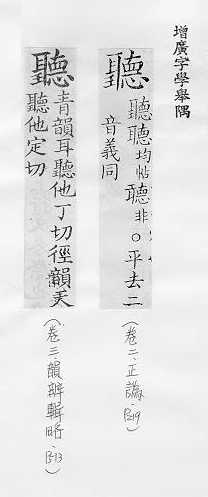 增廣字學舉隅
聽
聽聽均帖聽非○平去二
音義同
(卷二、正譌、P.19)
聽
青韻耳聽他丁切徑韻天
聽他定切
(卷三、韻辨輯略、P.13)